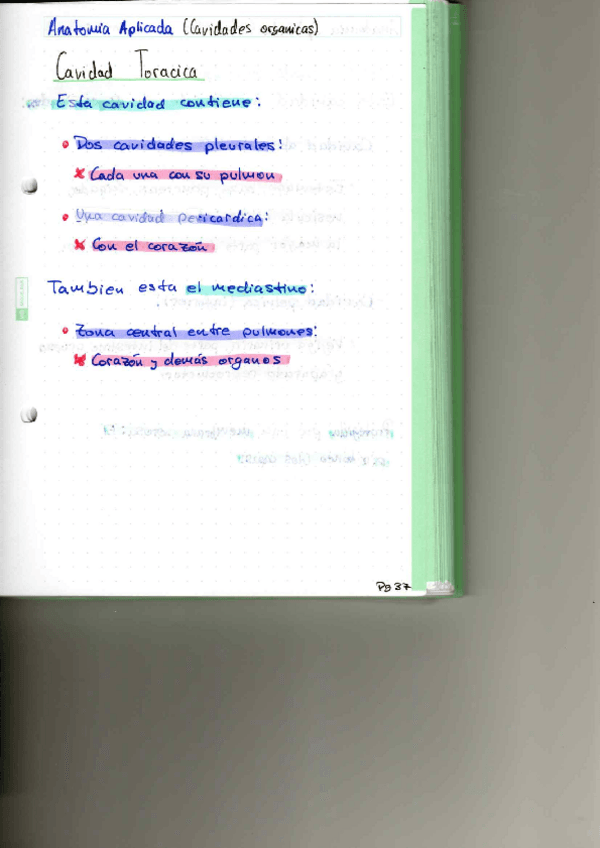 Anatomia Aplicada (Cavidades organicas)
Cavidad Toracica
Esta cavidad contiene:
Dos cavidades pleurales:
Cada una con su pulmon
Una cavidad pericardica:
Con el corazón
Tambien esta el mediastino:
Zona central entre pulmones:
Corazón y demás organos
Pg 37